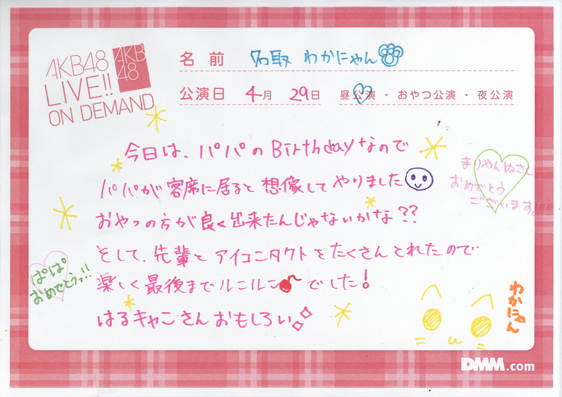 AKB48
LIVE!!
ON DEMAND
AKB
48
名前 名取 わかにゃん
公演日 4月 29日 昼公演・おやつ公演・夜公演
今日は、パパのBirthdayなので
パパが客席に居ると想像してやりました
おやつの方が良く出来たんじゃないかな??
そして、先輩とアイコンタクトをたくさんとれたので
楽しく最後までルンルンでした!
はるきゃんさんおもしろい
まりやんぬさん
おめでとう
ございます。
ぱぱ
おめでとっ!!
わかにゃん
DMM.com